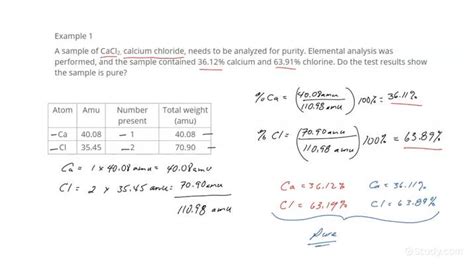 Example 1
A sample of CaCl₂, calcium chloride, needs to be analyzed for purity. Elemental analysis was
performed, and the sample contained 36.12% calcium and 63.91% chlorine. Do the test results show
the sample is pure?
Atom Amu Number present Total weight (amu)
Ca 40.08 1 40.08
Cl 35.45 2 70.90
Ca = 1 × 40.08 amu = 40.08 amu
Cl = 2 × 35.45 amu = 70.90 amu
110.98 amu
% Ca = (40.08 amu / 110.98 amu) 100% = 36.11%
% Cl = (70.90 amu / 110.98 amu) 100% = 63.89%
Ca = 36.12% Ca = 36.11%
Cl = 63.91% Cl = 63.89%
Pure
Study.com